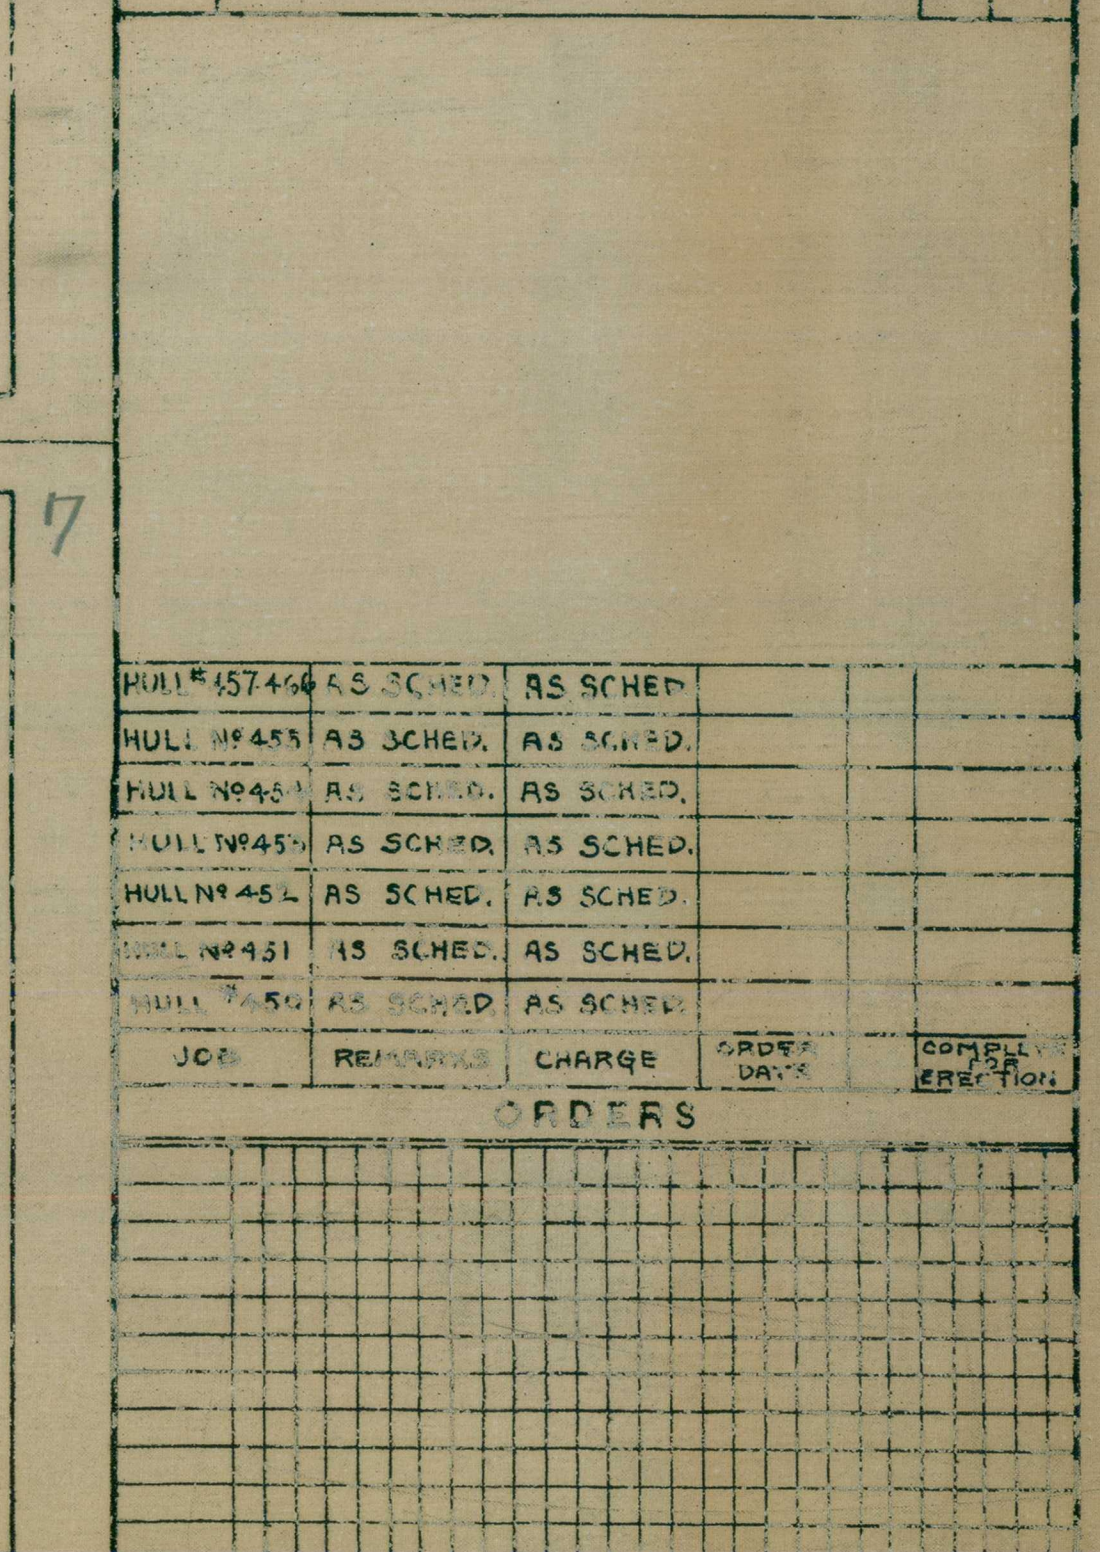 7
HULL #457-466 AS SCHED. AS SCHED
HULL Nº 455 AS SCHED. AS SCHED.
HULL Nº 454 AS SCHED. AS SCHED.
HULL Nº 453 AS SCHED. AS SCHED.
HULL Nº 452 AS SCHED. AS SCHED.
HULL Nº 451 AS SCHED. AS SCHED.
HULL #450 AS SCHED AS SCHED.
JOB REMARKS CHARGE ORDER DATE COMPLETE FOR ERECTION
ORDERS